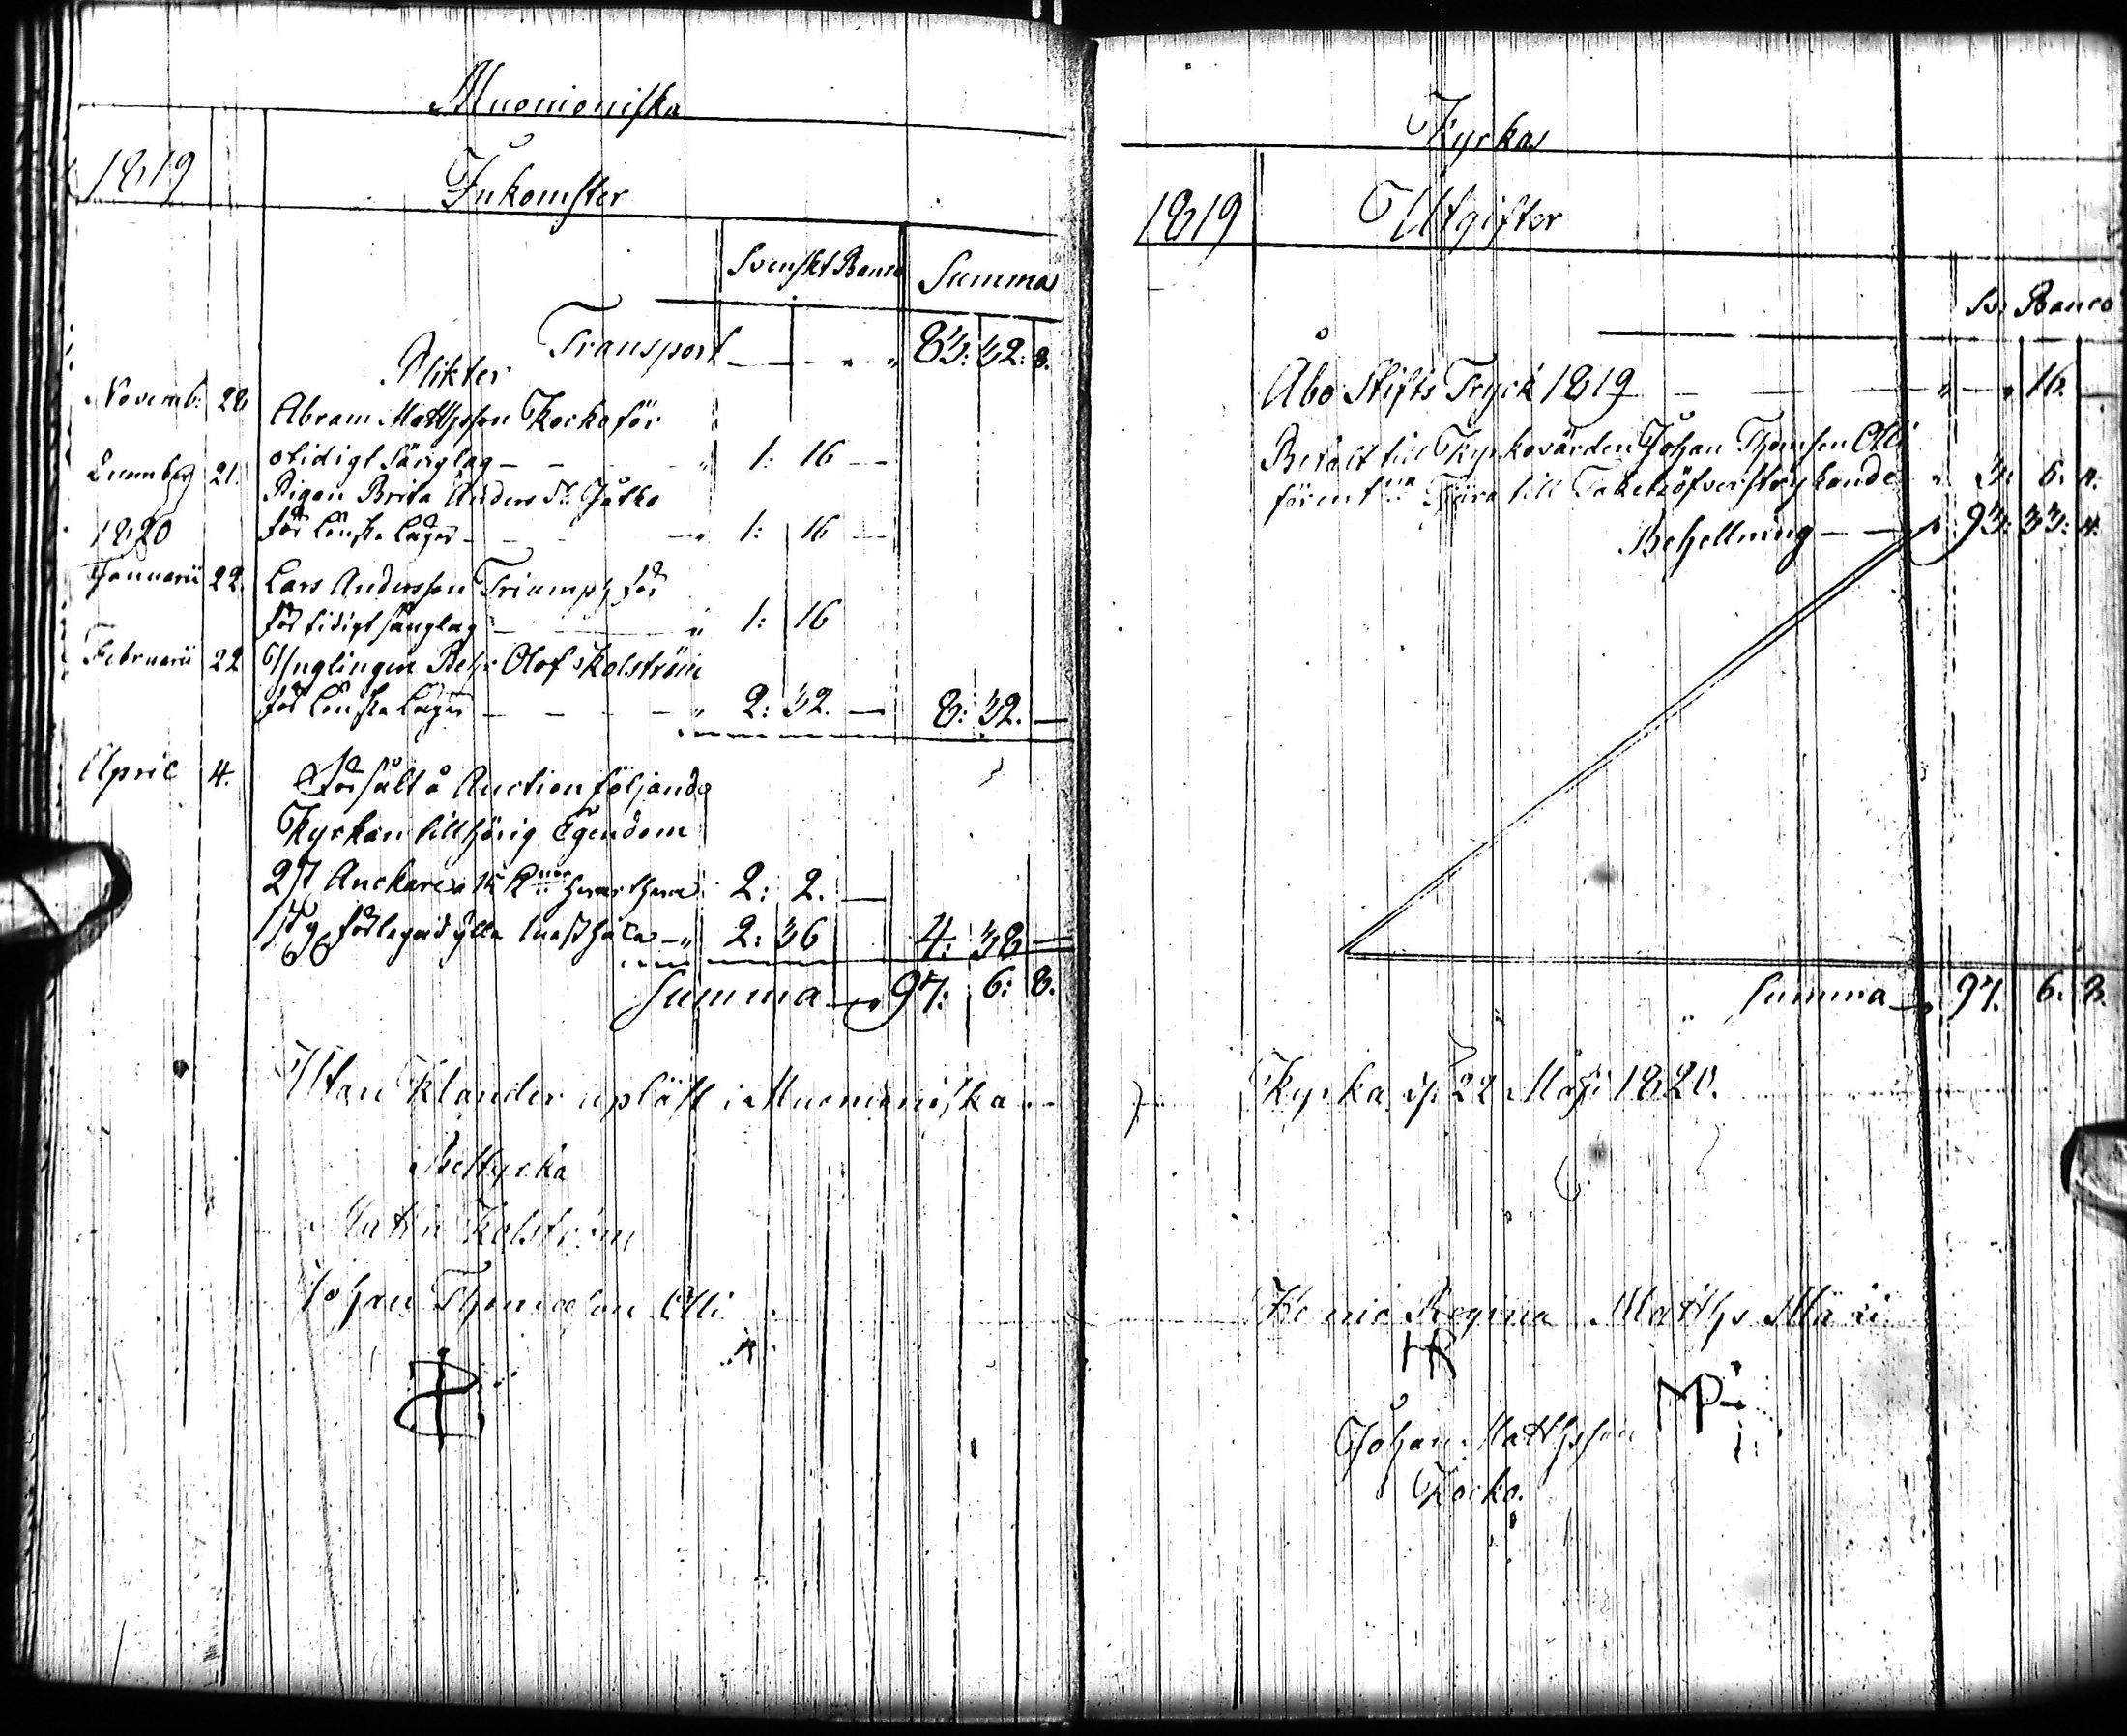 Muonioniska
1819 Inkomster
Svenskt Banco Summa
Transport 83: 32: 8.
Plikter
Novemb: 28 Abram Matthsson Kocko för
otidigt Sänglag 1: 16
Decemb 21. Pigan Brita Anders Dr Jatko
1820 för Lönska Läger 1: 16
Januarii 22. Lars Andersson Triumph för
för tidigt sänglag 1: 16
Februarii 22 Ynglingen Olof Kolström
för Lönska Läger 2: 32. 8: 32.
April 4. Försålt å Auction följande
Kyrkan tillhörig Egendom
2 st Anckare 2: 2.
1 st 2: 36 4: 38
Summa 97: 6: 8.
Utan Klander upläst i Muonioniska
Kolström
Johan Olli
Kyrka
1819 Utgifter
Sv. Banco
Åbo Stifts Tryck 1819 16.
Betalt till Kyrkovärden Johan Thomsson Olli
Tjära till Takets öfverstrykande 3: 6: 4.
Behollning 93: 33: 4.
Summa 97. 6. 8.
Kyrka d. 22 Maji 1820.
Regina Matths
HR
MP
Johan Matthsson
Kocko.